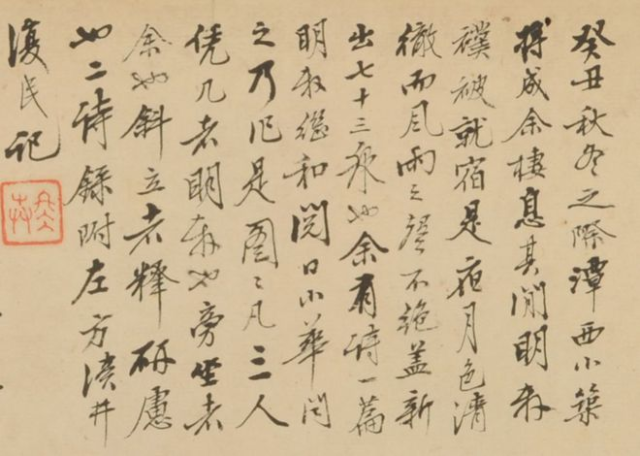 癸丑秋冬之際潭西小築
將成余棲息其間明叔
襆被就宿是夜月色清
徹而風雨之聲不絕蓋新
出七十三泉也余有詩一篇
明叔繼和閱日小華問
之乃作是圖〻凡三人
凭几者明叔也旁坐者
余也斜立者釋研慮
也二詩錄附左方瀆井
復民記